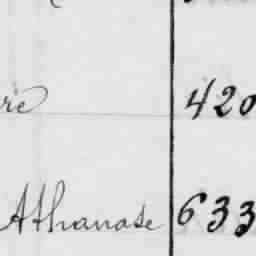 re 420
Athanase 633